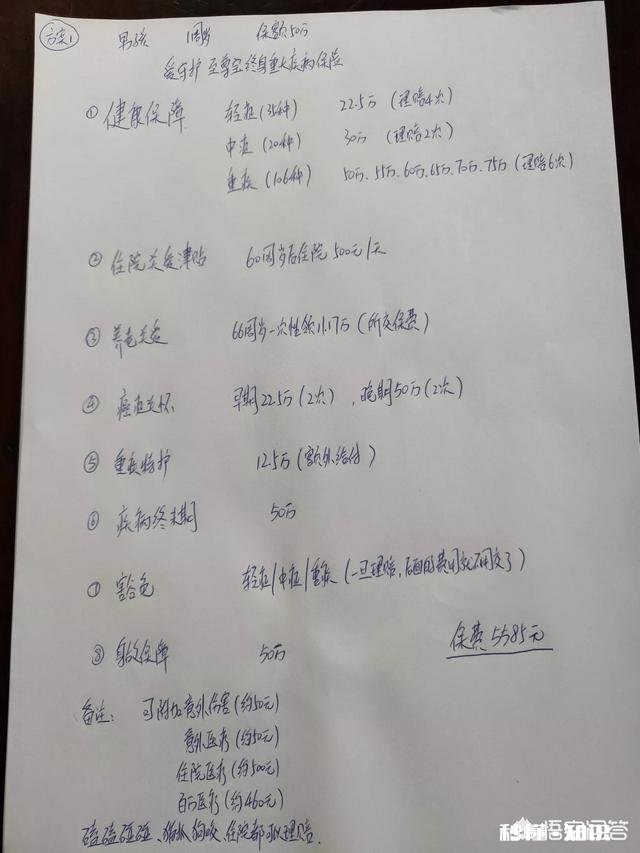 方案1 男孩 1周岁 保额50万
爱守护至尊宝终身重大疾病保险
① 健康保障 轻症(35种) 22.5万(理赔4次)
中症(20种) 30万(理赔2次)
重疾(106种) 50万、55万、60万、65万、70万、75万(理赔6次)
② 住院关爱津贴 60周岁后住院500元/天
③ 养老关爱 66周岁一次性领11.17万(所交保费)
④ 癌症关怀 早期22.5万(2次),晚期50万(2次)
⑤ 重疾特护 12.5万(额外给付)
⑥ 疾病终末期 50万
⑦ 豁免 轻症/中症/重疾(一旦理赔,后面的费用就不用交了)
⑧ 身故保障 50万
保费5585元
备注: 可附加意外伤害(约50元)
意外医疗(约50元)
住院医疗(约500元)
百万医疗(约460元)
磕磕碰碰、猫抓狗咬、住院都可以理赔.
悟空问答
秒懂知识